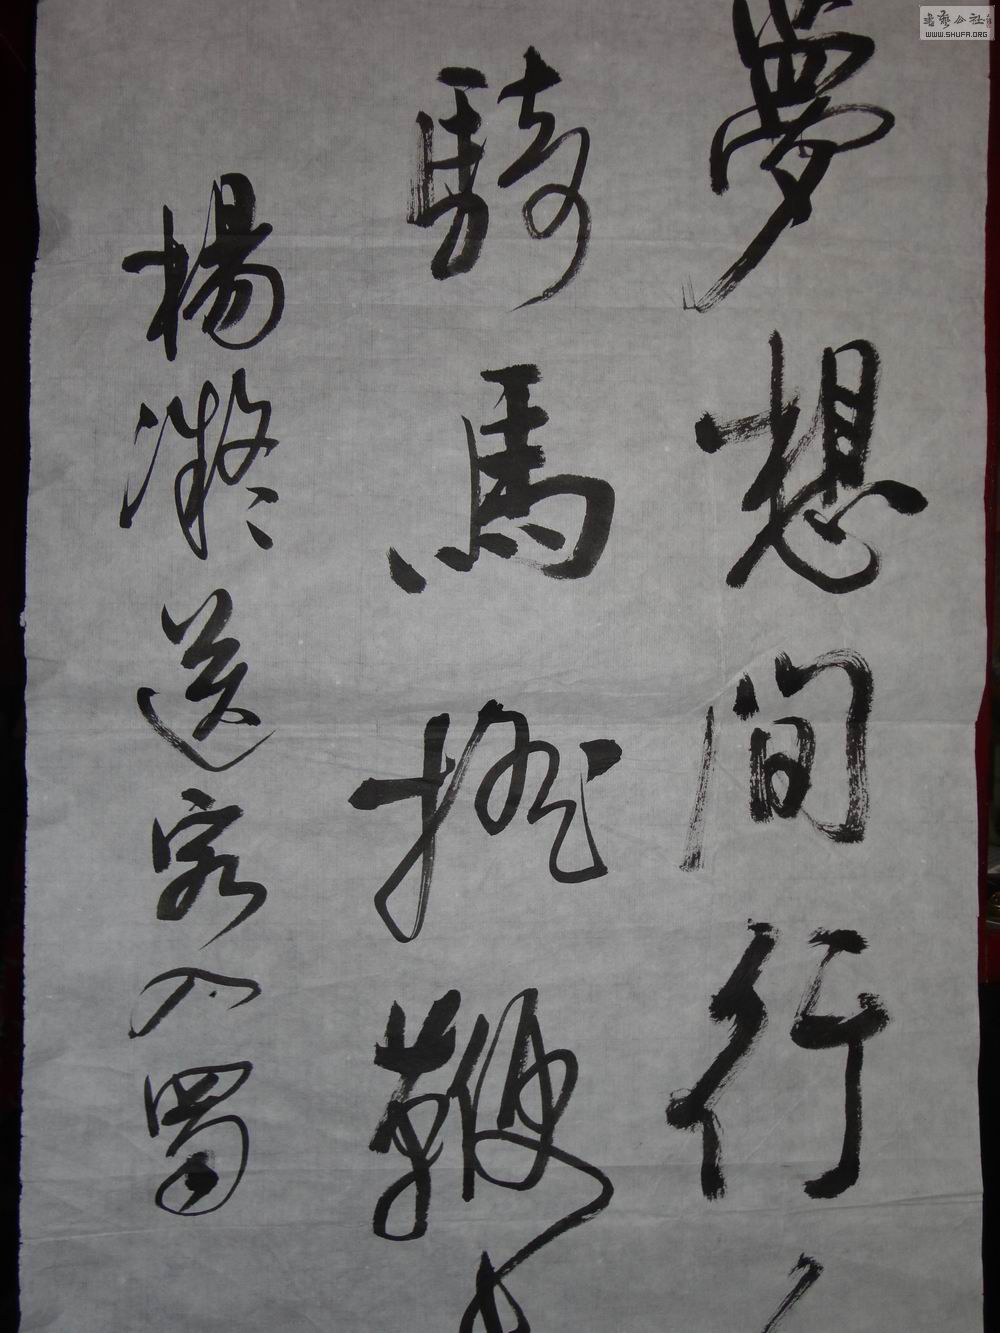 夢想間行
騎馬搖鞭
楊凝送客入蜀
書藝公社
WWW.SHUFA.ORG